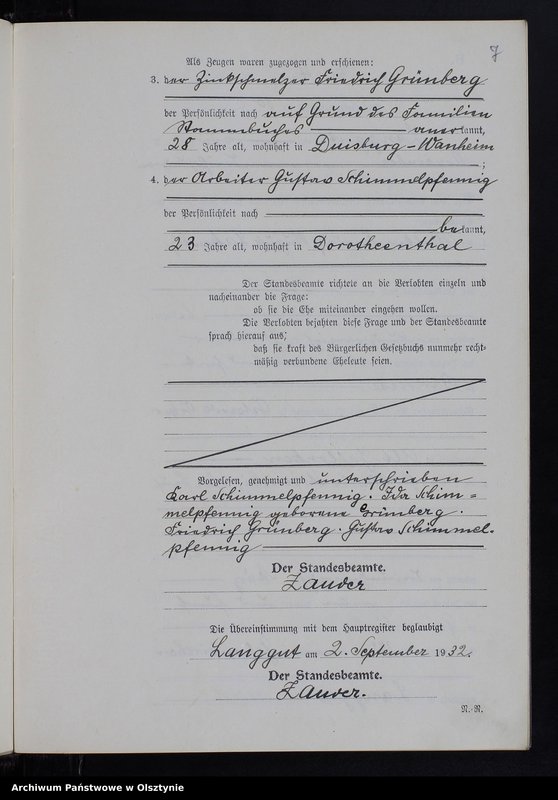 7
Als Zeugen waren zugezogen und erschienen:
3. der Zinkschmelzer Friedrich Grünberg
der Persönlichkeit nach auf Grund des Familien
Stammbuches anerkannt,
28 Jahre alt, wohnhaft in Duisburg-Wanheim
;
4. der Arbeiter Gustav Schimmelpfennig
der Persönlichkeit nach
bekannt,
23 Jahre alt, wohnhaft in Dorotheenthal
Der Standesbeamte richtete an die Verlobten einzeln und
nacheinander die Frage:
ob sie die Ehe miteinander eingehen wollen.
Die Verlobten bejahten diese Frage und der Standesbeamte
sprach hierauf aus,
daß sie kraft des Bürgerlichen Gesetzbuchs nunmehr recht-
mäßig verbundene Eheleute seien.
Vorgelesen, genehmigt und unterschrieben
Karl Schimmelpfennig. Ida Schim=
melpfennig geborene Grünberg.
Friedrich Grünberg. Gustav Schimmel-
pfennig
Der Standesbeamte.
Zander
Die Übereinstimmung mit dem Hauptregister beglaubigt
Langgut am 2. September 1932.
Der Standesbeamte.
Zander.
N.-R.
Archiwum Państwowe w Olsztynie